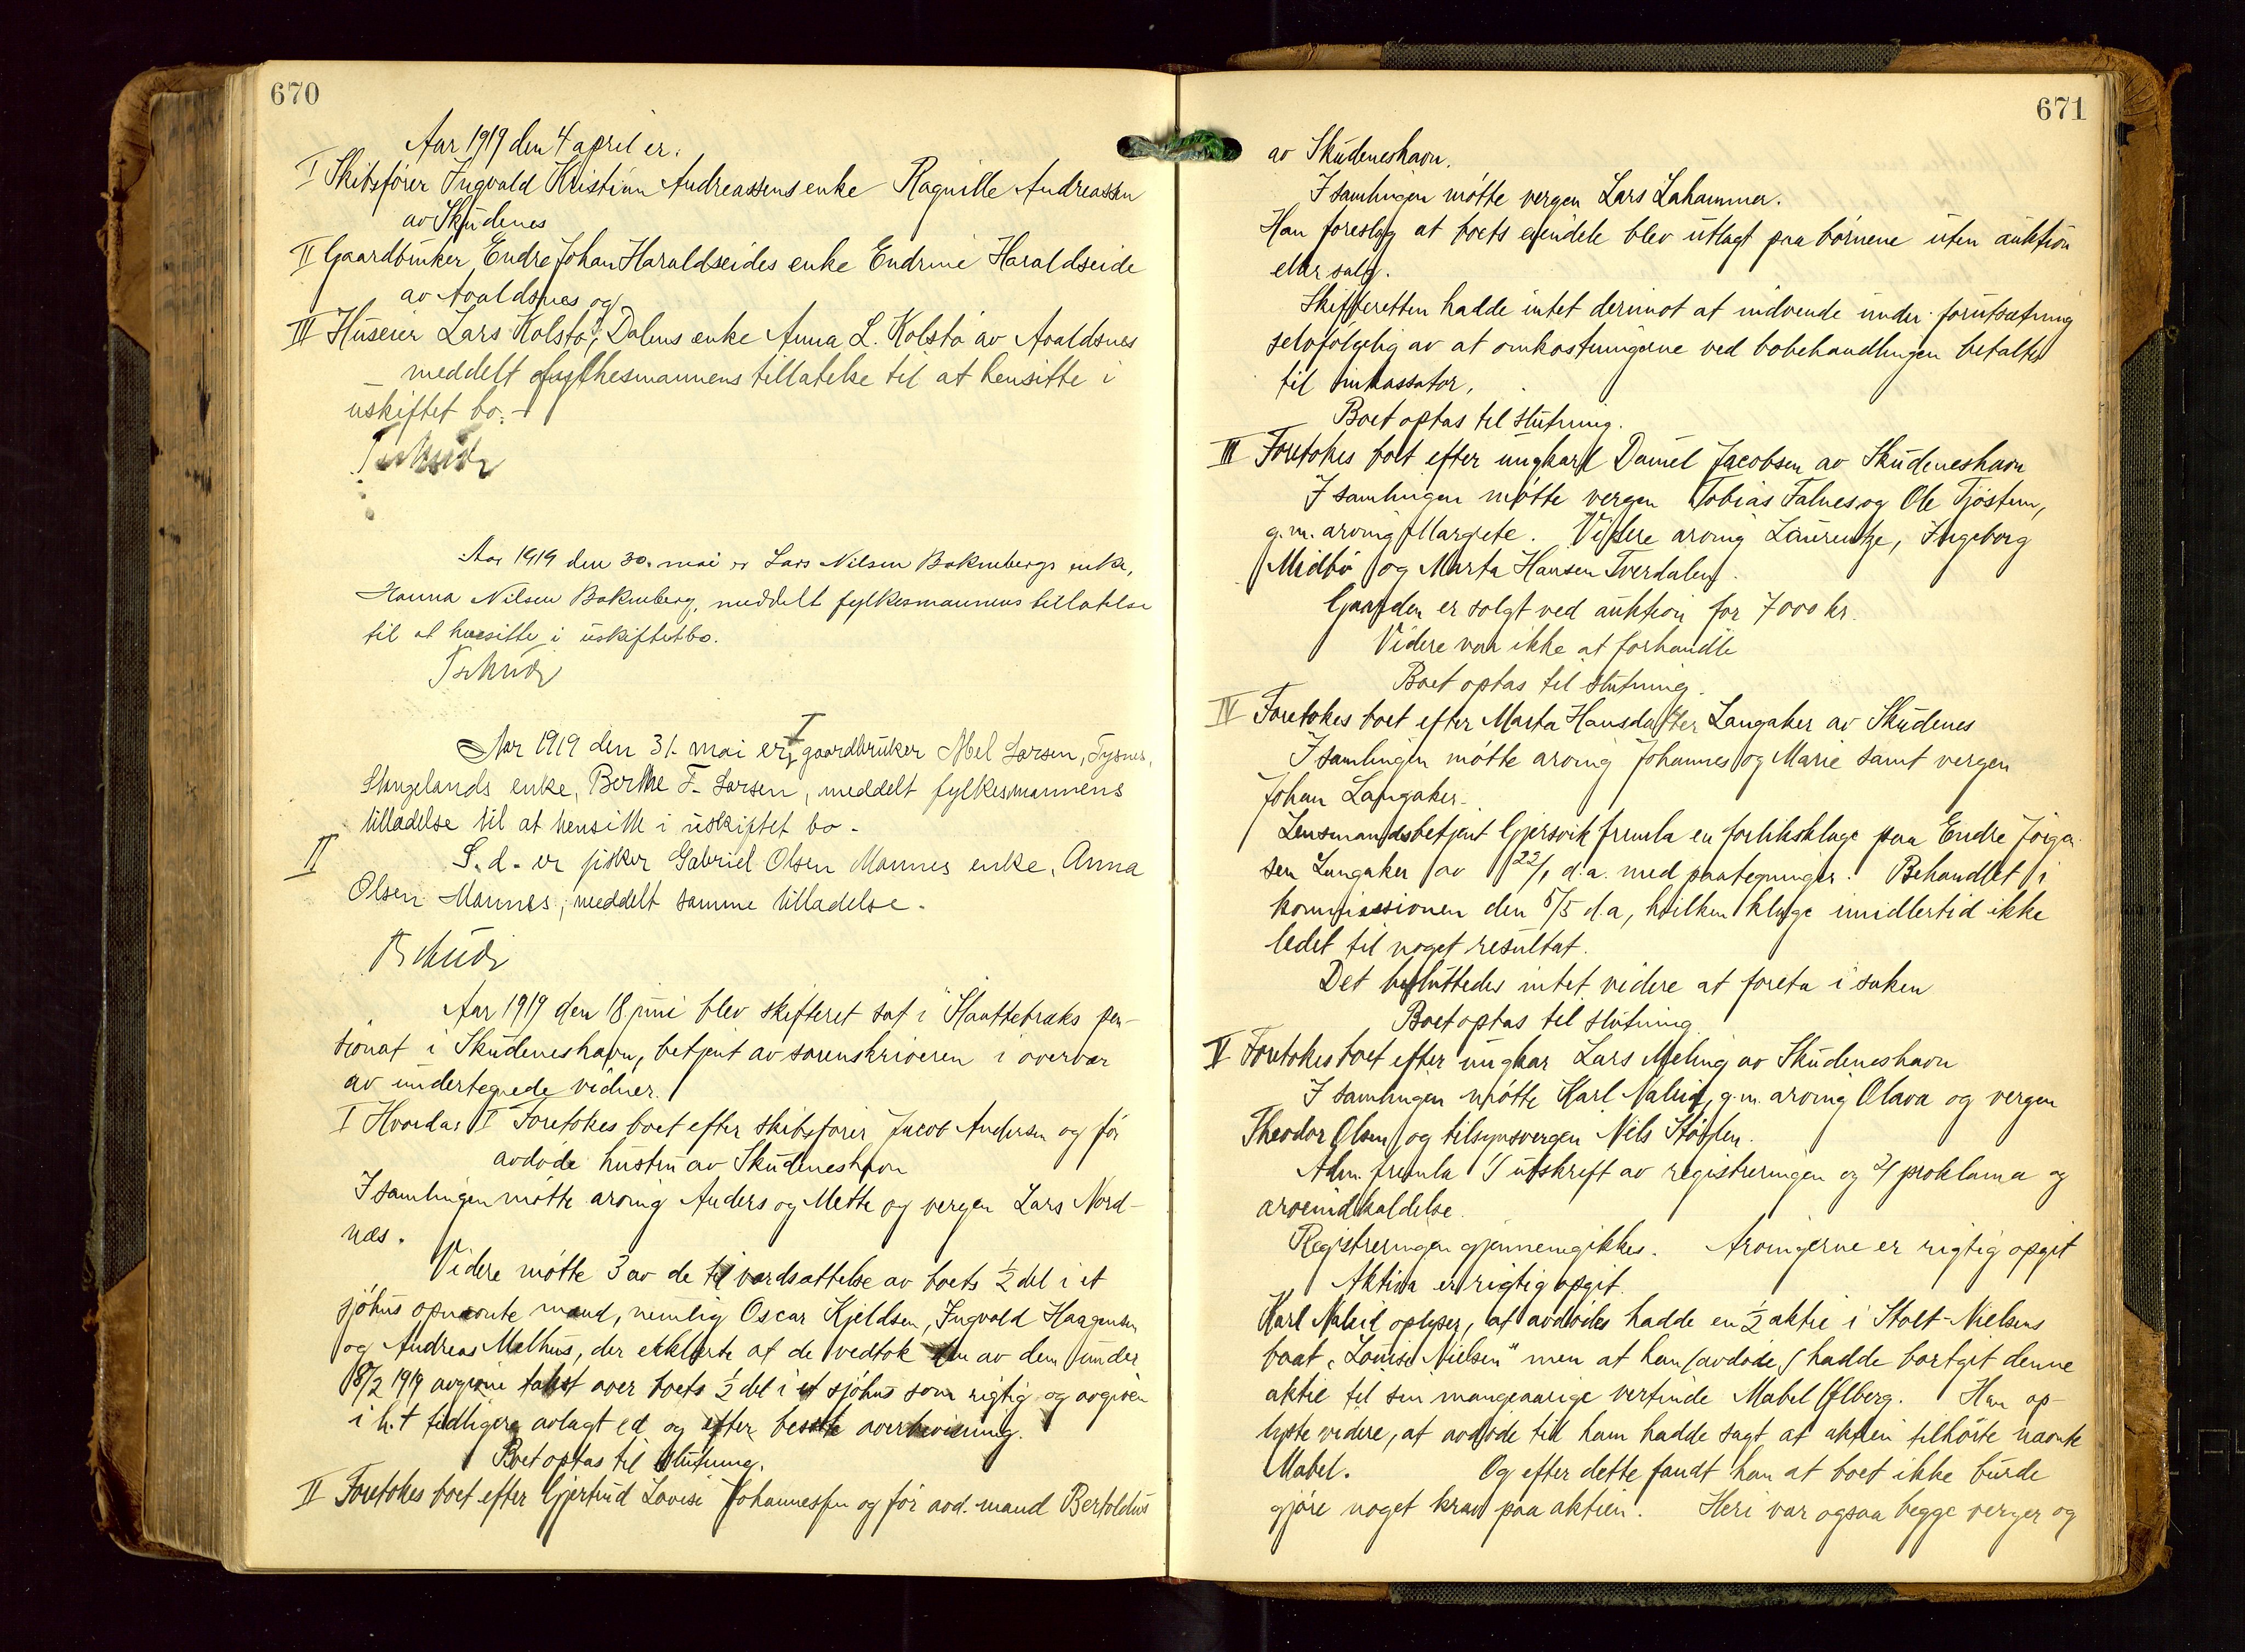 670
Aar 1919 den 4 april er:
I Skibsfører Ingvald Kristian Andreassens enke Ragnille Andreassen
av Skudenes
II Gaardbruker Endre Johan Haraldseides enke Endrine Haraldseide
av Avaldsnes og
III Huseier Lars Kolstø, Dalens enke Anna L. Kolstø av Avaldsnes
meddelt fylkesmannens tillatelse til at hensitte i
uskiftet bo. -
Tschudi
Aar 1919 den 30. mai er Lars Nilsen Boknebergs enke,
Hanna Nilsen Bokneberg, meddelt fylkesmannens tillatelse
til at hensitte i uskiftet bo.
Tschudi
Aar 1919 den 31. mai er, I gaardbruker Abel Larsen, Tysnes,
Stangelands enke, Berthe F. Larsen, meddelt fylkesmannens
tilladelse til at hensitte i uskiftet bo -
II S. d. er fisker Gabriel Olsen Mannes enke, Anna
Olsen Mannes, meddelt samme tilladelse.
Tschudi
Aar 1919 den 18 juni blev skifteret sat i Haattebræks pen-
sionat i Skudeneshavn, betjent av sorenskriveren i overvær
av undertegnede vidner.
I Hvorda: I Foretokes boet efter skibsfører Jacob Andersen og før
avdøde hustru av Skudeneshavn
I samlingen møtte arving Anders og Mette og vergen Lars Nord-
næs.
Videre møtte 3 av de til værdsættelse av boets ½ del i et
sjøhus opnævnte mænd, nemlig Oscar Kjeldsen, Ingvald Haagensen
og Andreas Melhus, der erklærte at de vedtok den av dem under
18/2 1919 avgivne takst over boets ½ del i et sjøhus som rigtig og avgiven
i h.t tidligere avlagt ed og efter bedste overbevisning.
Boet optas til slutning.
II Foretokes boet efter Gjertrud Lovise Johannessen og før avd. mand Bertoldus
671
av Skudeneshavn.
I samlingen møtte vergen Lars Lahammer.
Han foreslog at boets eiendele blev utlagt paa børnene uten auktion
eller salg.
Skifteretten hadde intet derimot at indvende under forutsætning
selvfølgelig av at omkostningerne ved bobehandlingen betaltes
til inkassator.
Boet optas til slutning.
III Foretokes boet efter ungkarl Daniel Jacobsen av Skudeneshavn
I samlingen møtte vergen Tobias Falnes og Ole Tjøstem,
g.m. arving Margrete. Videre arving Laurentze, Ingeborg
Midbø og Marta Hansen Tverdalen.
Gaarden er solgt ved auktion for 7000 kr.
Videre var ikke at forhandle
Boet optas til slutning.
IV Foretokes boet efter Marta Hansdatter Langaker av Skudenes
I samlingen møtte arving Johannes og Marie samt vergen
Johan Langaker.
Lensmandsbetjent Gjersvik fremla en forliksklage paa Endre Jørgen-
sen Langaker av 22/1 d.a. med paategninger. Behandlet i
kommissionen den 5/5 d.a, hvilken klage imidlertid ikke
ledet til noget resultat.
Det besluttedes intet videre at foreta i saken
Boet optas til slutning.
V Foretokes boet efter ungkar Lars Meling av Skudeneshavn
I samlingen møtte Karl Naleid, g.m. arving Olava og vergen
Theodor Olsen og tilsynsvergen Nils Støylen.
Adm. fremla 1/ utskrift av registreringen og 2/ proklama og
arveindkaldelse.
Registreringen gjennemgikkes. Arvingerne er rigtig opgit
Aktiva er rigtig opgit.
Karl Naleid oplyser, at avdødes hadde en ½ aktie i Stolt-Nielsens
baat "Louise Nielsen" men at han (avdøde) hadde bortgit denne
aktie til sin mangeaarige vertinde Mabel Ølberg. Han op-
lyste videre, at avdøde til ham hadde sagt at aktien tilhørte nævnte
Mabel. Og efter dette fandt han at boet ikke burde
gjøre noget krav paa aktien. Heri var ogsaa begge verger og